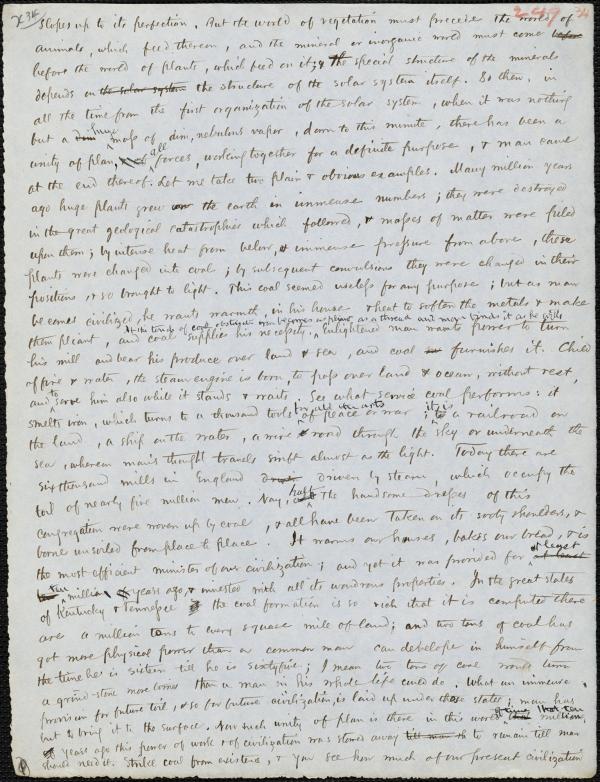 slopes up to its perfection. But the world of vegetation must precede the world of
animals, which feed thereon, and the mineral or inorganic world must come
before the world of plants, which feed on it; & the special structure of the minerals
depends on the solar system the structure of the solar system itself. So then, in
all the time from the first organization of the solar system, when it was nothing
but a dim huge mass of dim, nebulous vapor, down to this minute, there has been a
unity of plan, all forces, working together for a definite purpose, & man came
at the end thereof. Let me take two plain & obvious examples. Many million years
ago huge plants grew on the earth in immense numbers; they were destroyed
in the great geological catastrophes which followed, & masses of matter were piled
upon them; by intense heat from below, & immense pressure from above, these
plants were changed into coal; by subsequent convulsions they were changed in their
positions & so brought to light. This coal seemed useless for any purpose; but as man
becomes civilized, he wants warmth, in his house & heat to soften the metals & make
At the touch of coal, obstinate iron becomes as pliant as a thread and man bends it as he will
them pliant, and coal supplies his necessity. Enlightened man wants power to turn
his mill and bear his produce over land & sea, and coal furnishes it. Child
of fire & water, the steam engine is born, to pass over land & ocean, without rest,
and to serve him also while it stands & waits. See what service coal performs: it
smelts iron, which turns to a thousand tools for all the arts of peace or war; it is a railroad on
the land, a ship on the water, a wire road through the sky or underneath the
sea, wherein man's thought travels swift almost as the light. Today there are
six thousand mills in England driven by steam, which occupy the
toil of nearly five million men. Nay, half the handsome dresses of this
congregation were woven up by coal, & all have been taken on its sooty shoulders, &
borne unsoiled from place to place. It warms our houses, bakes our bread, & is
the most efficient minister of our civilization; and yet it was provided for at least
ten million years ago, & invested with all its wondrous properties. In the great states
of Kentucky & Tennessee the coal formation is so rich that it is computed there
are a million tons to every square mile of land; and two tons of coal has
got more physical power than a common man can develope in himself from
the time he is sixteen till he is sixtyfive; I mean two tons of coal would turn
a grind-stone more times than a man in his whole life could do. What an immense
provision for future toil, & so for future civilization, is laid up under these states; man has
but to bring it to the surface. Now such unity of plan is there in this world that ten million
years ago this power of work & of civilization was stored away to remain till man
should need it. Strike coal from existence, & you see how much of our present civilization